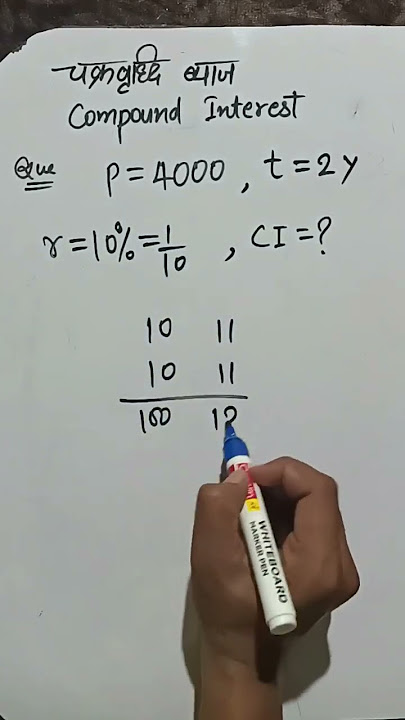 चक्रवृद्धि ब्याज
Compound Interest
Que P=4000, t=2y
r=10%=1/10, CI=?
10 11
10 11
100 12
WHITEBOARD
MARKER PEN